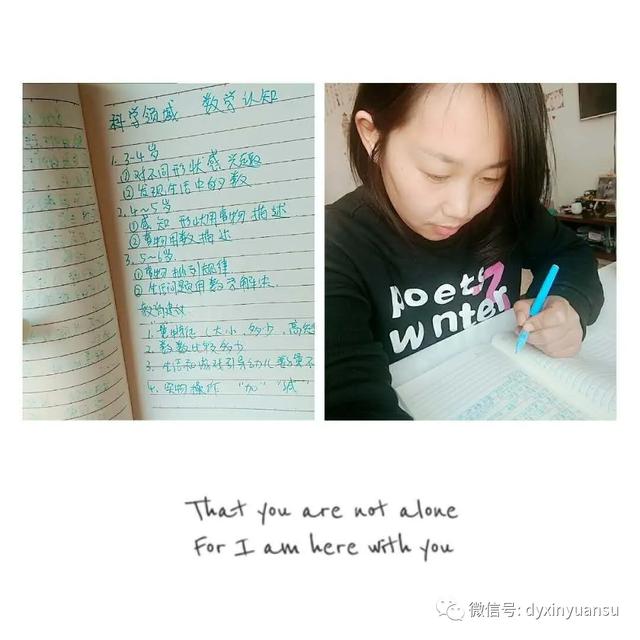 科学领域 数学认知
1. 3~4岁
①对不同形状感兴趣
②发现生活中的数
2. 4~5岁
①感知形状用事物描述
②事物用数描述
3. 5~6岁
①事物排列规律
②生活问题用数学解决
教育建议
1. 量特征(大小、多少、高矮
2. 数数比较多少
3. 生活和游戏引导幼儿
4. 实物操作 "加" "减"
poets
wnter
That you are not alone
For I am here with you
微信号: dyxinyuansu